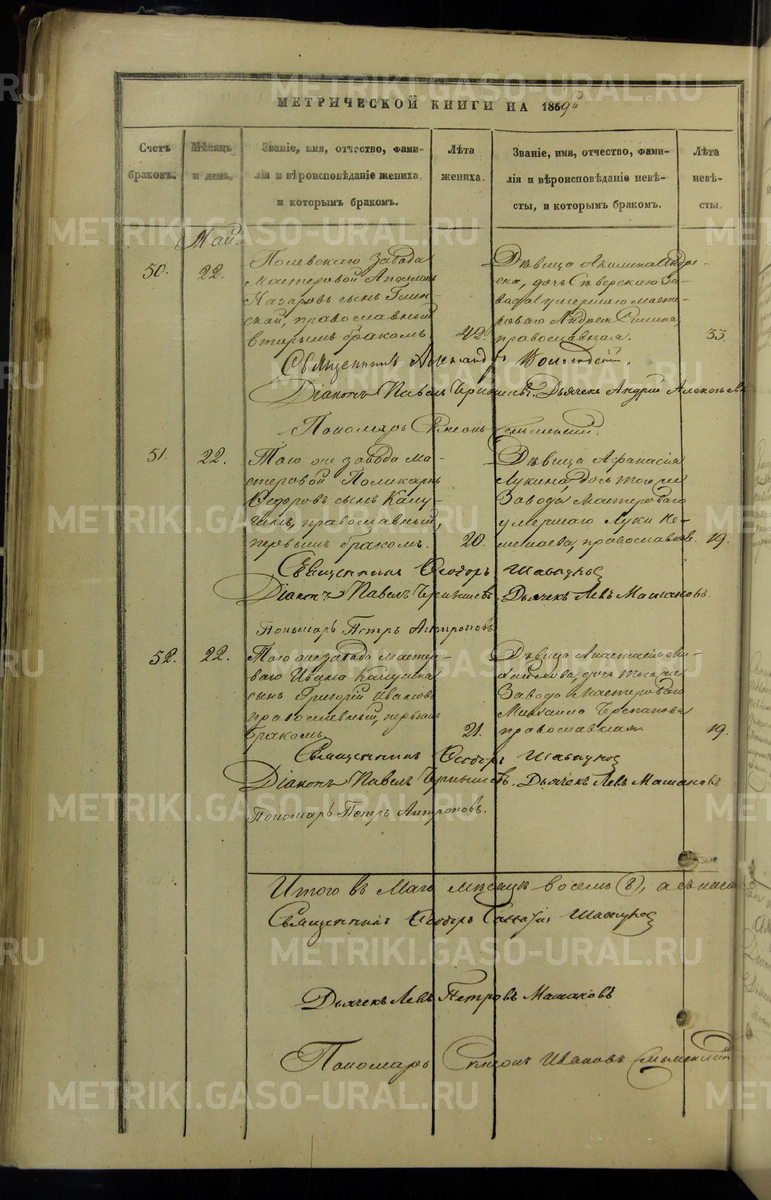 МЕТРИЧЕСКОЙ КНИГИ НА 1859й
Счетъ браковъ.
Мѣсяцъ и день.
Званіе, имя, отчество, фами-
лія и вѣроисповѣданіе жениха,
и которымъ бракомъ.
Лѣта
жениха.
Званіе, имя, отчество, фами-
лія и вѣроисповѣданіе невѣ-
сты, и которымъ бракомъ.
Лѣта
невѣ-
сты.
Май.
50.
22.
Полевскаго завода
мастеровой
Назаровъ сынъ
православный
вторымъ бракомъ.
42.
Дѣвица Акилина Андре-
ена, дочь Сѣверскаго За-
вода умершаго масте-
роваго Андрея
православная.
33.
Священникъ Александръ
Діаконъ Павелъ Чернышевъ. Дьячекъ Андрей Алексѣевъ
Пономарь Симеонъ
51.
22.
Того же завода ма-
стеровой Поликарпъ
Ѳедоровъ сынъ
православный,
первымъ бракомъ.
20.
Дѣвица Афанасія
Лукина дочь того же
Завода Мастероваго
умершаго Луки
православная
19.
Священникъ Ѳеодоръ
Діаконъ Павелъ Чернышевъ. Дьячекъ Левъ Машановъ.
Пономарь Петръ Антроповъ
52.
22.
Того же завода мастеро-
ваго Ивана
сынъ Григорій Ивановъ
православный, первымъ
бракомъ.
21.
Дѣвица Анастасія Ми-
хайлова, дочь того же
Завода Мастероваго
Михаила Черепанова
православная
19.
Священникъ Ѳеодоръ
Діаконъ Павелъ Чернышевъ. Дьячекъ Левъ Машановъ
Пономарь Петръ Антроповъ.
Итого въ Маѣ мѣсяцѣ восемь (8),
Священникъ Ѳеодоръ
Дьячекъ Левъ Петровъ Машановъ
Пономарь Симеонъ Ивановъ
METRIKI.GASO-URAL.RU